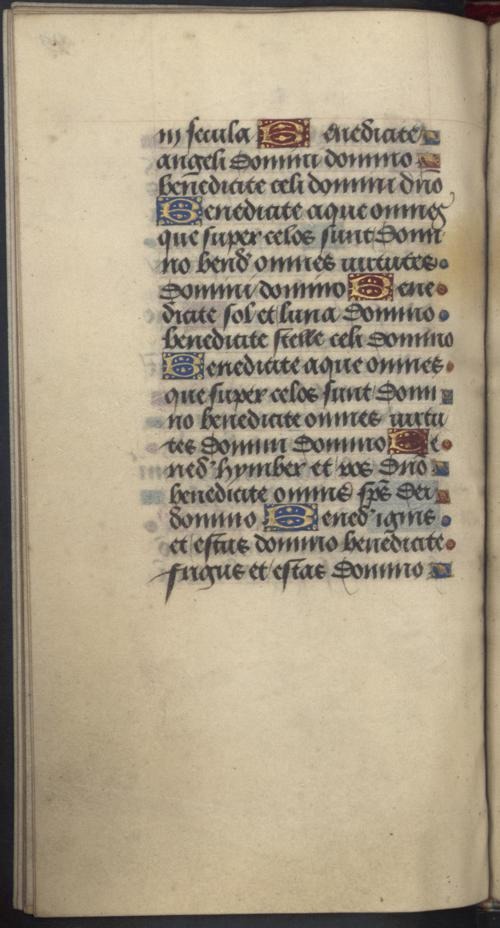 in secula Benedicite
angeli domini domino
benedicite celi domini dño
Benedicite aque omnes
que super celos sunt domi
no bend' omnes uirtutes
domini domino Bene
dicite sol et luna domino
benedicite stelle celi domino
Benedicite aque omnes
que super celos sunt domi
no benedicite omnes uirtu
tes domini domino Be
ned' hymber et ros dño
benedicite omnis sps̃ dei
domino Bened' ignis
et estus domino benedicite
frigus et estas domino